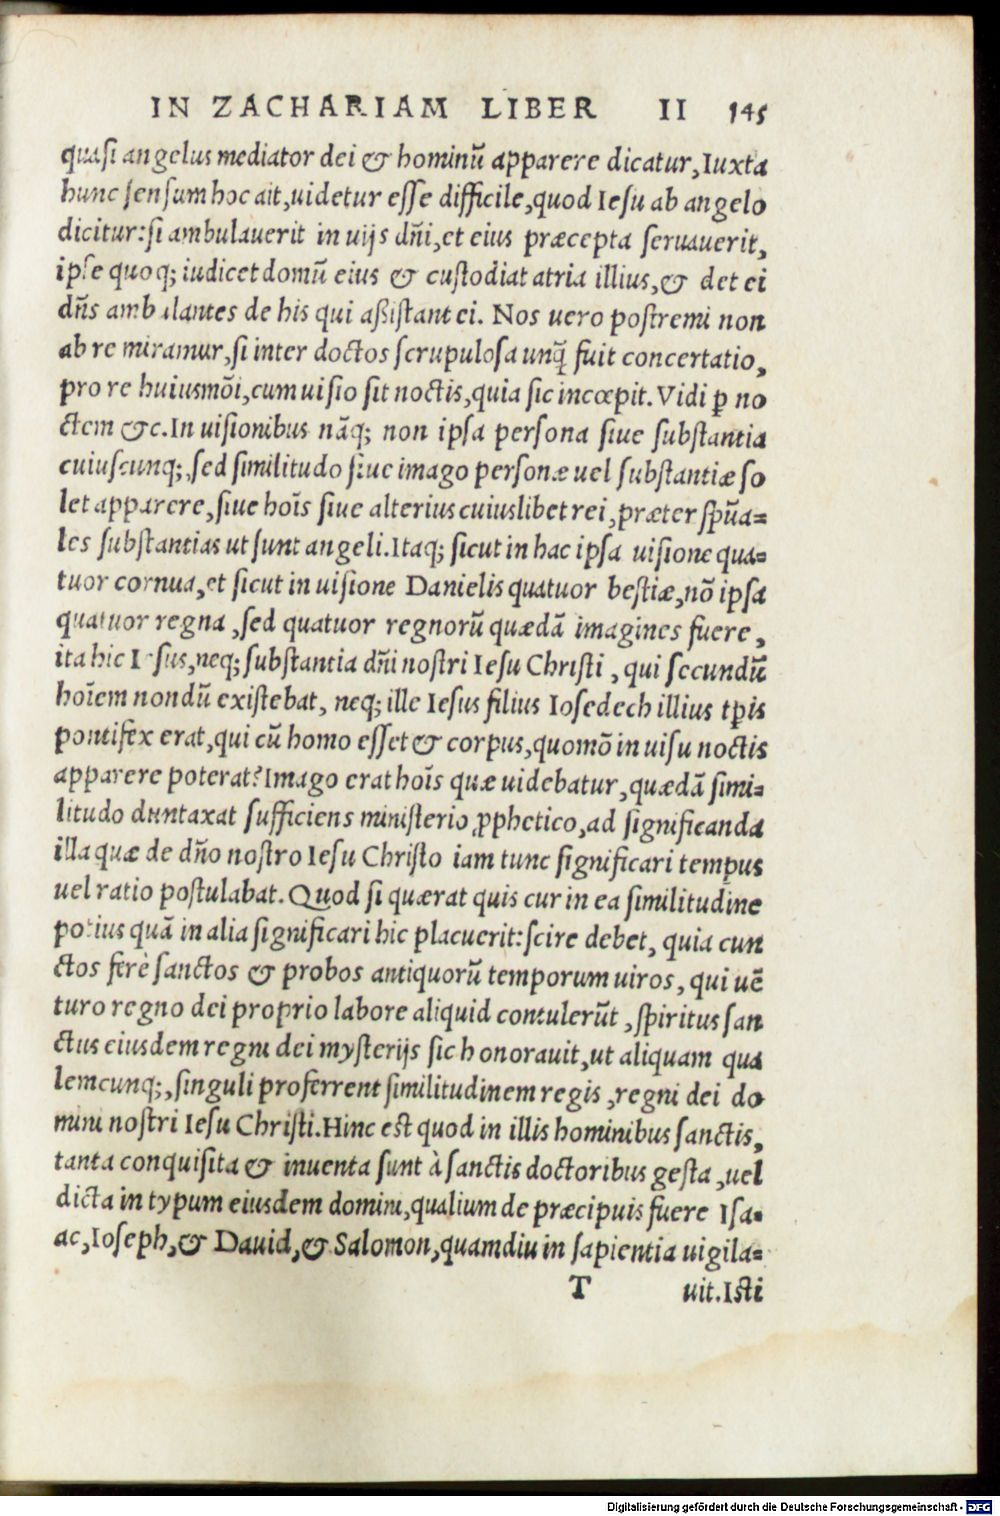 IN ZACHARIAM LIBER II 145
quasi angelus mediator dei & hominū apparere dicatur, Iuxta
hunc sensum hoc ait, uidetur esse difficile, quod Iesu ab angelo
dicitur: si ambulauerit in uijs dñi, et eius præcepta seruauerit,
ipse quoq; iudicet domū eius & custodiat atria illius, & det ei
dñs ambulantes de his qui aßistant ei. Nos uero postremi non
ab re miramur, si inter doctos scrupulosa unq̃ fuit concertatio,
pro re huiusmōi, cum uisio sit noctis, quia sic incœpit. Vidi ꝑ no
ctem &c. In uisionibus nāq; non ipsa persona siue substantia
cuiuscunq;, sed similitudo siue imago personæ uel substantiæ so
let apparere, siue hoīs siue alterius cuiuslibet rei, præter spūa=
les substantias ut sunt angeli. Itaq; sicut in hac ipsa uisione qua=
tuor cornua, et sicut in uisione Danielis quatuor bestiæ, nō ipsa
quatuor regna, sed quatuor regnorū quædā imagines fuere,
ita hic Iesus, neq; substantia dñi nostri Iesu Christi, qui secundū
hoīem nondū existebat, neq; ille Iesus filius Iosedech illius tꝑis
pontifex erat, qui cū homo esset & corpus, quomō in uisu noctis
apparere poterat? Imago erat hoīs quæ uidebatur, quædā simi=
litudo duntaxat sufficiens ministerio ꝓphetico, ad significanda
illa quæ de dño nostro Iesu Christo iam tunc significari tempus
uel ratio postulabat. Quod si quærat quis cur in ea similitudine
potius quā in alia significari hic placuerit: scire debet, quia cun
ctos ferè sanctos & probos antiquorū temporum uiros, qui uē
turo regno dei proprio labore aliquid contulerūt, spiritus san
ctus eiusdem regni dei mysterijs sic honorauit, ut aliquam qua
lemcunq;, singuli proferrent similitudinem regis, regni dei do
mini nostri Iesu Christi. Hinc est quod in illis hominibus sanctis,
tanta conquisita & inuenta sunt à sanctis doctoribus gesta, uel
dicta in typum eiusdem domini, qualium de præcipuis fuere Isa=
ac, Ioseph, & Dauid, & Salomon, quamdiu in sapientia uigila=
T uit. Isti
Digitalisierung gefördert durch die Deutsche Forschungsgemeinschaft - DFG